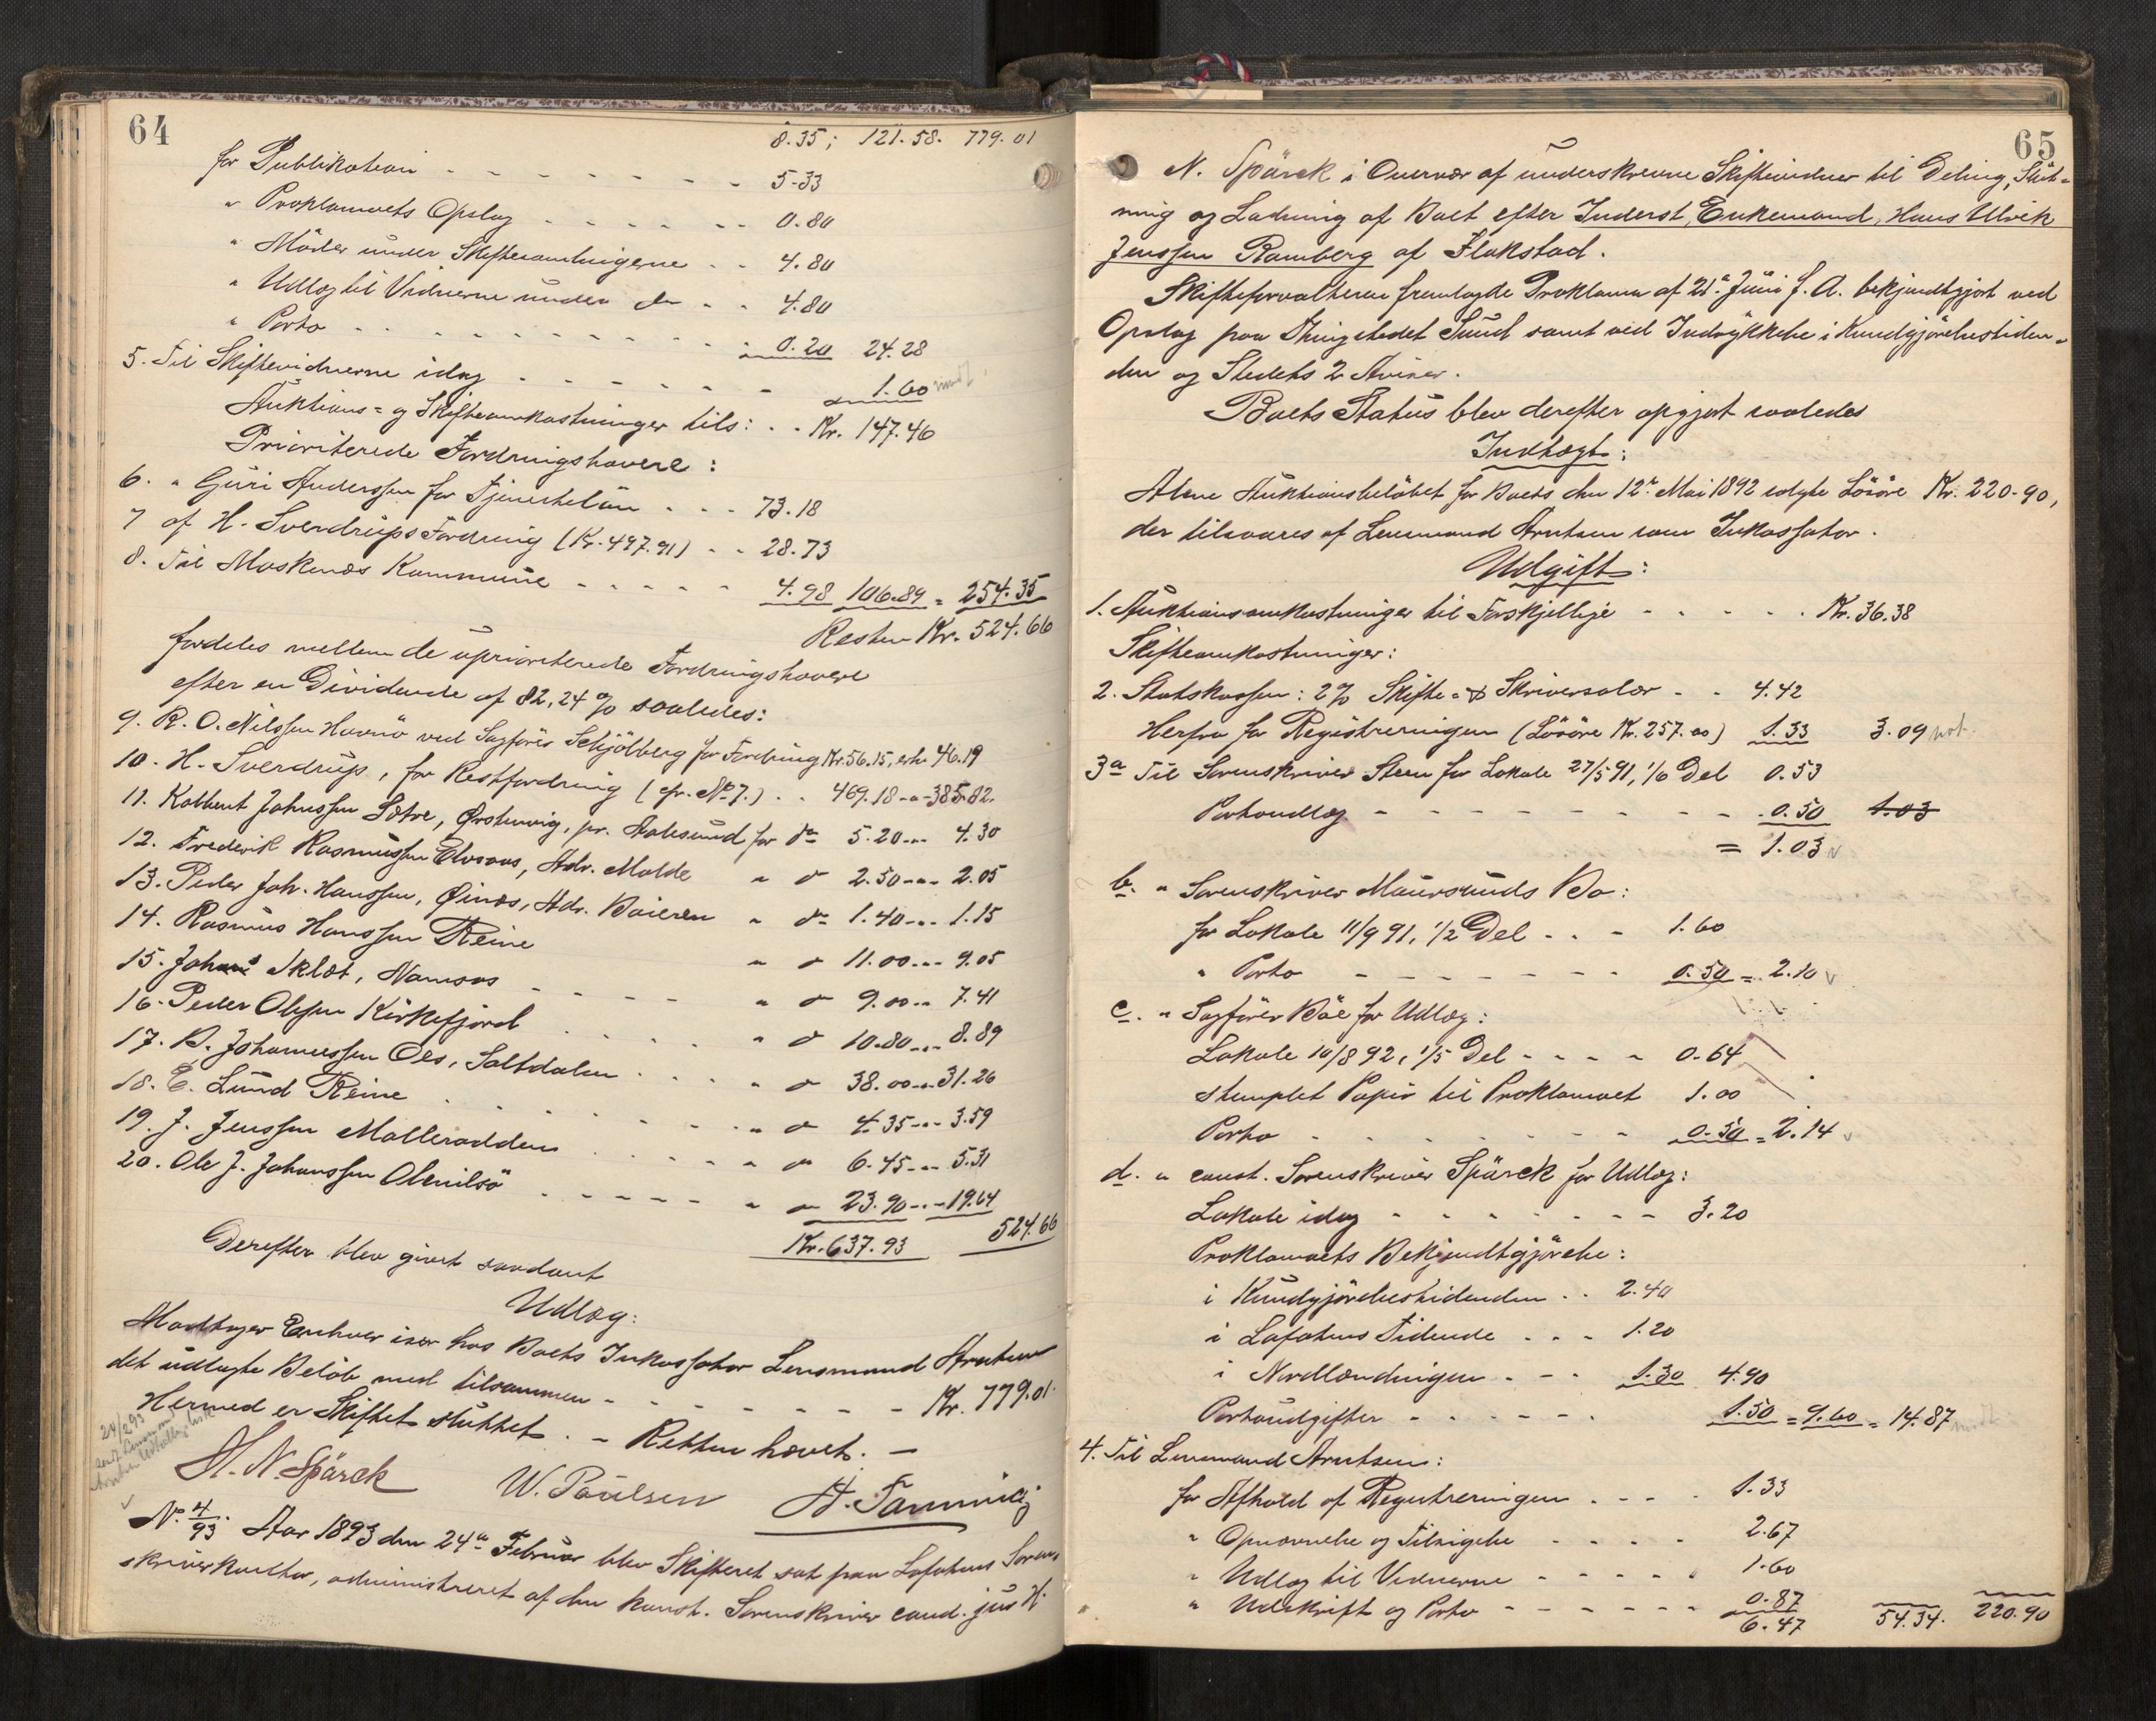 64
8.35; 121.58. 779.01
for Publikation - - - - - - - - 5-33
" Proklamaets Opslag - - - - - - 0.80
" Möder under Skiftesamlingerne - - 4.80
" Udlæg til Vidnerne under do - - 4.80
" Porto - - - - - - - - - 0.20 24.28
5. Til Skiftevidnerne idag - - - - - - 1.60
Auktions= og Skifteomkostninger tils: - - Kr. 147.46
Prioriterede Fordringshavere:
6. " Guri Anderssen for Tjenesteløn - - - 73.18
7 af H. Sverdrups Fordring (Kr. 497.91) - - 28.73
8. Til Moskenæs Kommune - - - - - 4.98 106.89 = 254.35
Resten Kr. 524.66
fordeles mellem de uprioriterede Fordringshavere
efter en Dividende af 82,24 % saaledes:
9. R. O. Nilssen Havnö ved Sagförer Schjölberg for Fordring Kr. 56.15, erh. 46.19
10. H. Sverdrup, for Restfordring (cfr. No 7.) - - 469.18 - " - 385.82.
11. Kolbent Johnssen Sætre, Ørstenvig, pr. Aalesund for do 5.20 - " - 4.30
12. Frederik Rasmussen Elvsaas, Adr. Molde " do 2.50 - " - 2.05
13. Peder Joh. Hanssen, Øinæs, Adr. Beieren " do 1.40 - " - 1.15
14. Rasmus Hanssen Reine " do 11.00 - " - 9.05
15. Johan Sklæt, Namsos - - - - " do 9.00 - " 7.41
16. Peder Olssen Kirkefjord - - - - " do 10.80 - " - 8.89
17. B. Johannessen Oes, Saltdalen - - - - " do 38.00 - " - 31.26
18. E. Lund Reine - - - - - " do 4.35 - " - 3.59
19. J. Jenssen Mølleradden - - - - " do 6.45 - " - 5.31
20. Ole J. Johanssen Olenilsö - - - - - " do 23.90 - " - 19.64
Kr. 637.93 524.66
Derefter blev givet saadant
Udlæg:
Modtager Enhver især hos Boets Inkassator Lensmand Arntsen
det udlagte Beløb med tilsammen - - - - - - - Kr. 779.01.
Hermed er Skiftet sluttet. - Retten hævet. -
24/2 93
H. N. Spärck W. Paulsen
No 4/93. Aar 1893 den 24de Februar blev Skifteret sat paa Lofotens Soren=
skriverkontor, administreret af den konst. Sorenskriver cand. jur H.
65
N. Spärck i Overvær af underskrevne Skiftevidner til Deling, Slut=
ning og Ladning af Boet efter Inderst, Enkemand, Hans Ulrik
Jenssen Ramberg af Flakstad.
Skifteforvalteren fremlagde Proklama af 21de Juni f. A. bekjendtgjort ved
Opslag paa Thingstedet Sund samt ved Indrykkelse i Kundgjörelsestiden=
den og Stedets 2 Aviser.
Boets Status blev derefter opgjort saaledes
Indtægt:
Alene Auktionsbelöbet for Boets den 12te Mai 1892 solgte Lösöre Kr. 220-90,
der tilsvares af Lensmand Arntsen som Inkassator.
Udgift:
1. Auktionsomkostninger til Forskjellige - - - - - Kr. 36.38
Skifteomkostninger:
2. Statskassen: 2% Skifte= & Skriversalær - - 4.42
Herfra for Registreringen (Lösöre Kr. 257.00) 1.33 3.09 not.
3a Til Sorenskriver Steen for Lokale 27/5 91, 1/6 Del 0.53
Portoudlæg - - - - - - - - - 0.50 1.03
= 1.03
b. " Sorenskriver Maursunds Bo:
for Lokale 11/9 91, 1/2 Del - - - 1.60
" Porto - - - - - - - 0.50 = 2.10
c. " Sagförer Böe for Udlæg:
Lokale 10/8 92, 1/5 Del - - - - 0.64
stemplet Papir til Proklamaet 1.00
Porto - - - - - - - 0.50 = 2.14
d. " const. Sorenskriver Spärck for Udlæg:
Lokale idag - - - - - - - 3.20
Proklamaets Bekjendtgjörelse:
i Kundgjörelsestidenden - - 2.40
i Lofotens Tidende - - - 1.20
i Nordlændingen - - - 1.30 4.90
Portoudgifter - - - - - - 1.50 = 9.60 = 14.87
4. Til Lensmand Arntsen:
for Afhold af Registreringen - - - - 1.33
" Opnævnelse og Tilsigelse - - - - 2.67
" Udlæg til Vidnerne - - - - - 1.60
" Udskrift og Porto - - - - - - 0.87
6.47 54.34. 220.90